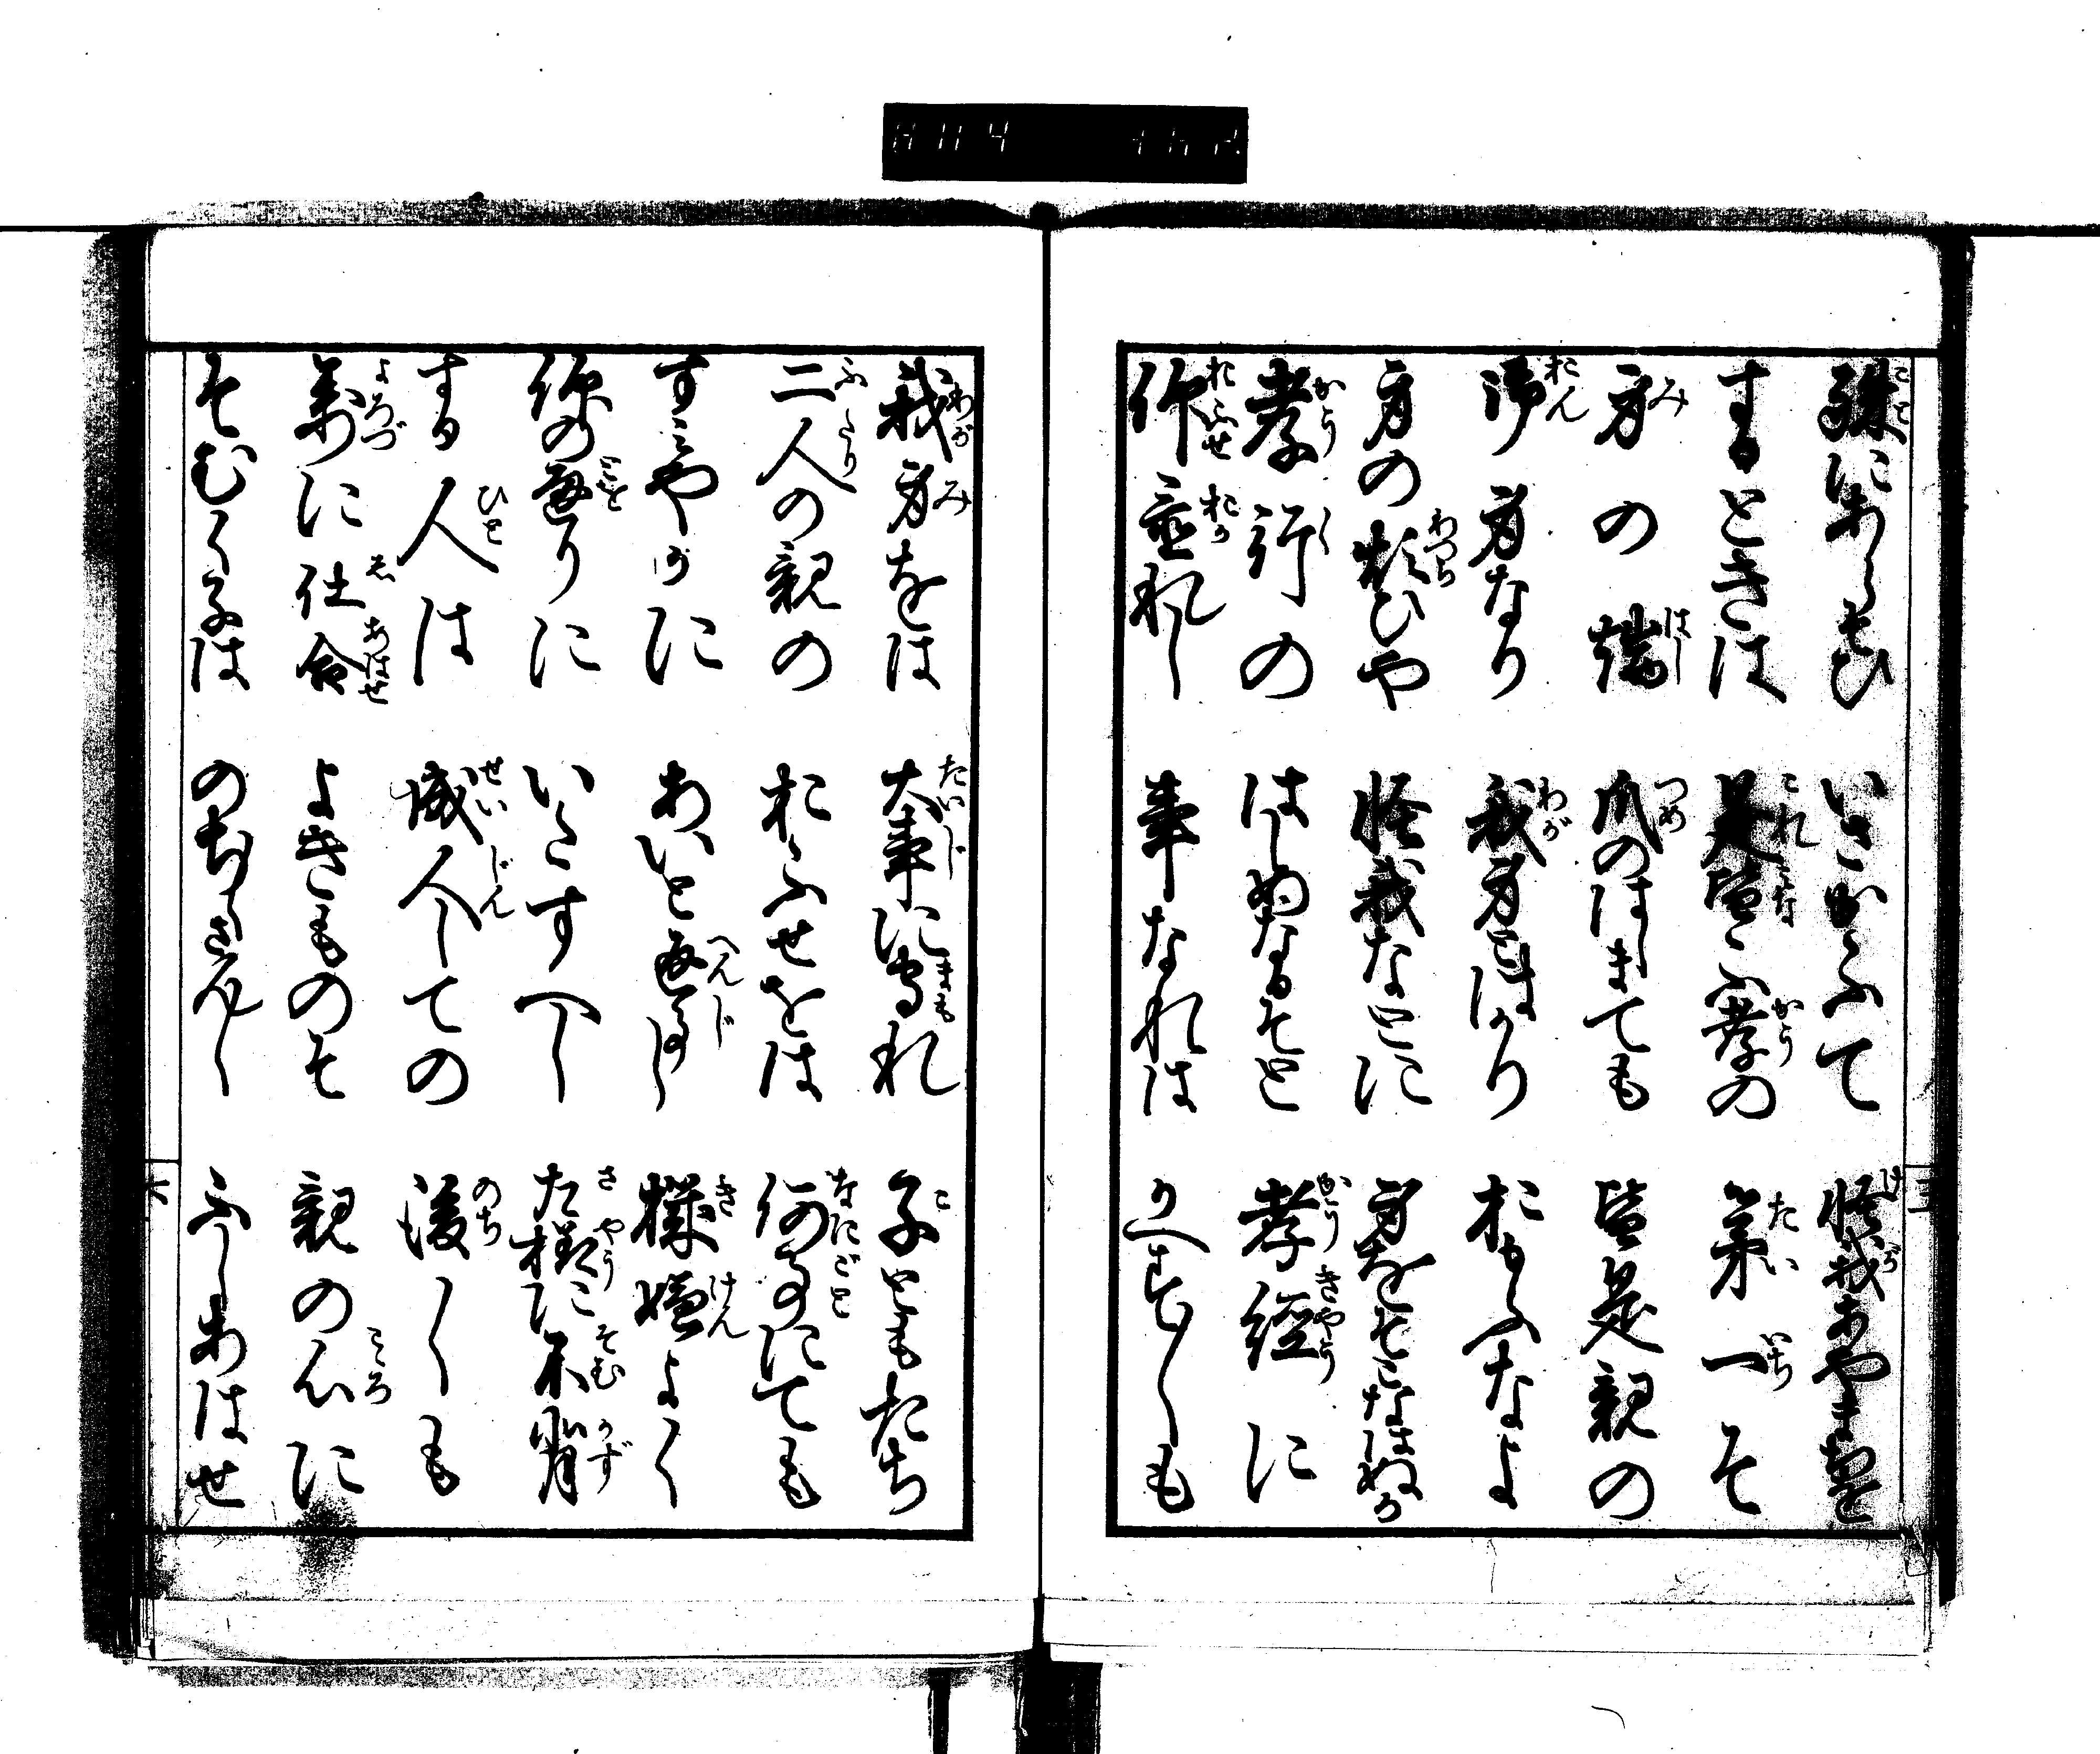 殊にあらそひ いさかふて 怪我あやまちを
するときは 是皆不孝の 第一そ
身の端 爪のはしまても 皆是親の
御身なり 我身とはかり おもふなよ
身の煩ひや 怪我なとに 身をそこなはぬか
孝行の はしめなるそと 孝経に
仰置れし 事なれは かへす〳〵も
我身をは 大事に守れ 子ともたち
二人の親の おふせをは 何事にても
すみやかに あいと返事し 機嫌よく
仰の通りに いたすへし 左様に不背
する人は 成人しての 後〳〵も
万に仕合 よきものそ 親の心に
そむく子は のちさん〳〵 ふしあはせ
六